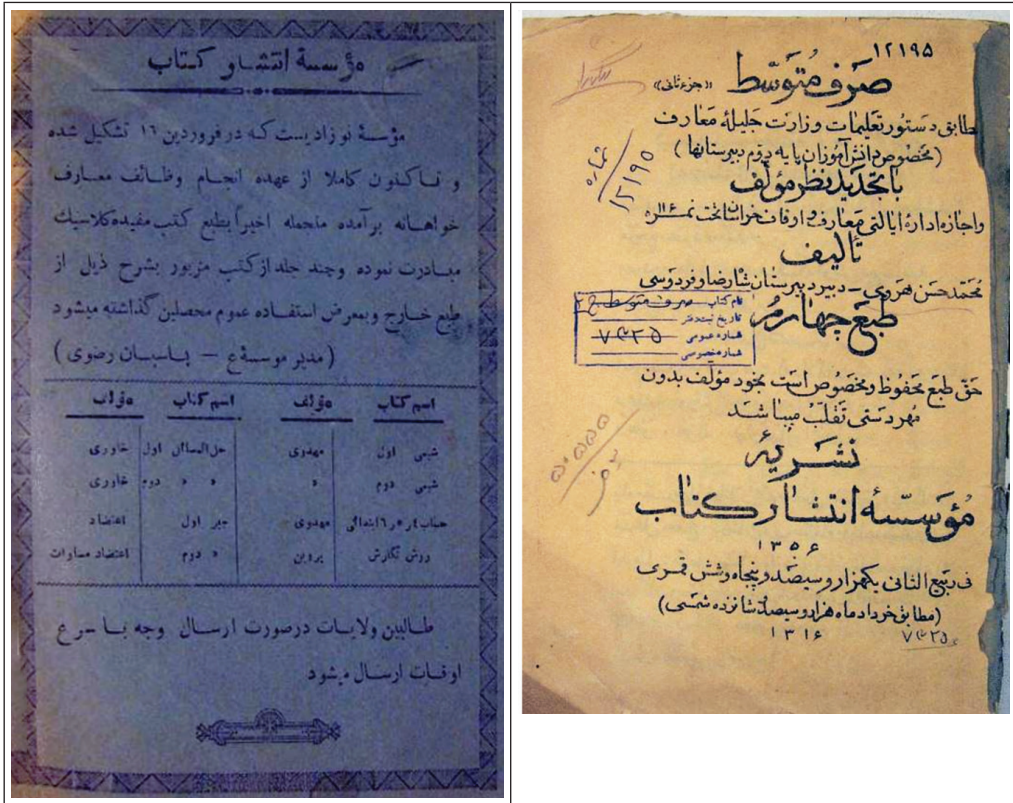 مؤسسهٔ انتشار کتاب
مؤسهٔ نوزادیست که در فروردین ۱۶ تشکیل شده
و تاکنون کاملا از عهده انجام وظائف معارف
خواهانه برآمده منجمله اخیراً بطبع کتب مفیده کلاسیك
مبادرت نموده و چند جلد از کتب مزبور بشرح ذیل از
طبع خارج و بمعرض استفاده عموم محصلین گذاشته میشود
(مدیر موسسه ع — پاسبان رضوی)
اسم کتاب مؤلف اسم کتاب مؤلف
شیمی اول مهدوی حل المسائل اول خاوری
شیمی دوم » » » دوم خاوری
حساب ۴ و ۵ و ۶ ابتدائی مهدوی جبر اول اعتضاد
روش نگارش پروین » دوم اعتضاد مساوات
طالبین ولایات درصورت ارسال وجه با سرع
اوقات ارسال میشود
۱۲۱۹۵
صرف متوسط ((جزء ثانی))
مطابق دستور تعلیمات وزارت جلیلهٔ معارف
(مخصوص دانش آموزان پایه دوم دبیرستانها)
با تجدید نظر مؤلف
و اجازه ادارهٔ ایالتی معارف و اوقاف خراسان تحت نمره ۱۱۶
تألیف
محمد حسن هروی - دبیر دبیرستان شارضا و فردوسی
طبع چهارم
نام کتاب صرف متوسط ج ۲
تاریخ ثبت دفتر
شماره عمومی ۷۳۲۵
شماره خصوصی
شماره
۱۲۱۹۵
حق طبع محفوظ و مخصوص است بخود مؤلف بدون
مهر دستی تقلب میباشد
نشریهٔ
مؤسسهٔ انتشار کتاب
۱۳۵۶
فی ربیع الثانی یکهزار و سیصد و پنجاه و شش قمری
(مطابق خرداد ماه هزار و سیصد و شانزده شمسی)
۱۳۱۶
۷۳۲۵